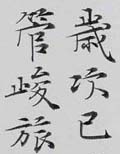 歲次己
管峻旅